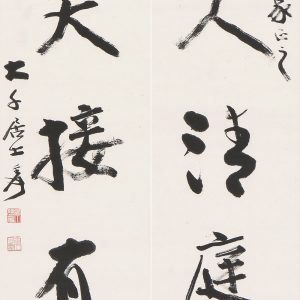 家正之
人清庭
大接有
大千居士爰